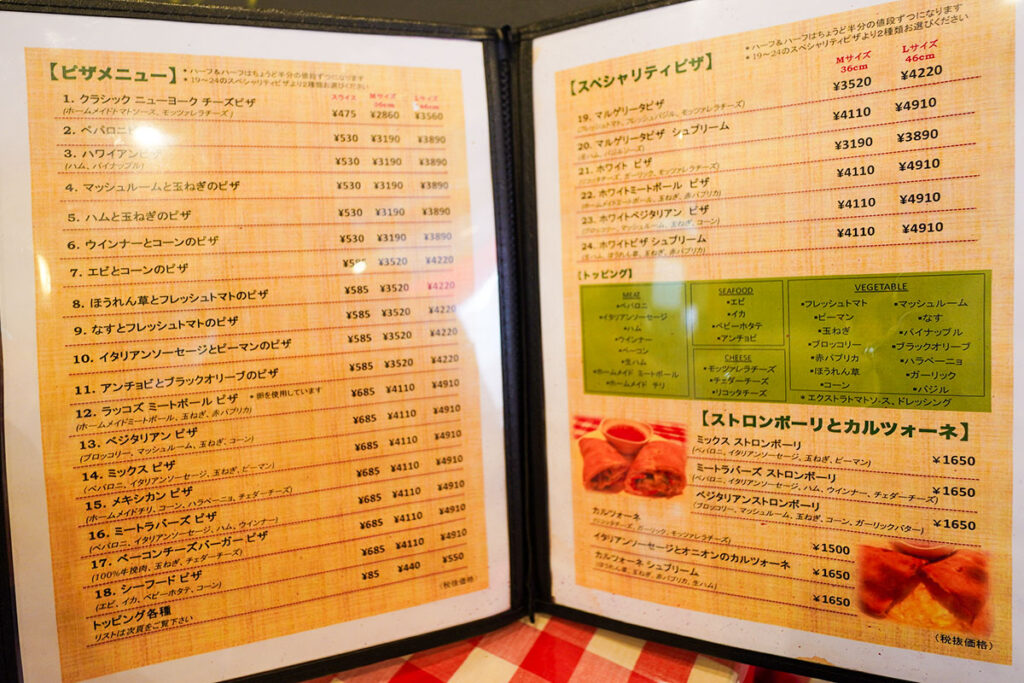 【ピザメニュー】
*ハーフ&ハーフはちょうど半分の値段ずつになります
*19〜24のスペシャリティピザより2種類お選びください
スライス Mサイズ 36cm Lサイズ 46cm
1. クラシック ニューヨーク チーズピザ ¥475 ¥2860 ¥3560
(ホームメイドトマトソース、モッツァレラチーズ)
2. ペパロニピザ ¥530 ¥3190 ¥3890
3. ハワイアンピザ ¥530 ¥3190 ¥3890
(ハム、パイナップル)
4. マッシュルームと玉ねぎのピザ ¥530 ¥3190 ¥3890
5. ハムと玉ねぎのピザ ¥530 ¥3190 ¥3890
6. ウインナーとコーンのピザ ¥530 ¥3190 ¥3890
7. エビとコーンのピザ ¥585 ¥3520 ¥4220
8. ほうれん草とフレッシュトマトのピザ ¥585 ¥3520 ¥4220
9. なすとフレッシュトマトのピザ ¥585 ¥3520 ¥4220
10. イタリアンソーセージとピーマンのピザ ¥585 ¥3520 ¥4220
11. アンチョビとブラックオリーブのピザ ¥585 ¥3520 ¥4220
12. ラッコズ ミートボール ピザ *卵を使用しています ¥685 ¥4110 ¥4910
(ホームメイドミートボール、玉ねぎ、赤パプリカ)
13. ベジタリアン ピザ ¥685 ¥4110 ¥4910
(ブロッコリー、マッシュルーム、玉ねぎ、コーン)
14. ミックス ピザ ¥685 ¥4110 ¥4910
(ペパロニ、イタリアンソーセージ、玉ねぎ、ピーマン)
15. メキシカン ピザ ¥685 ¥4110 ¥4910
(ホームメイドチリ、コーン、ハラペーニョ、チェダーチーズ)
16. ミートラバーズ ピザ ¥685 ¥4110 ¥4910
(ペパロニ、イタリアンソーセージ、ハム、ウインナー)
17. ベーコンチーズバーガー ピザ ¥685 ¥4110 ¥4910
(100%牛挽肉、玉ねぎ、チェダーチーズ)
18. シーフード ピザ ¥685 ¥4110 ¥4910
(エビ、イカ、ベビーホタテ、コーン)
トッピング各種 ¥85 ¥440 ¥550
リストは次頁をご覧下さい
(税抜価格)
【スペシャリティピザ】
*ハーフ&ハーフはちょうど半分の値段ずつになります
*19〜24のスペシャリティピザより2種類お選びください
Mサイズ 36cm Lサイズ 46cm
19. マルゲリータピザ ¥3520 ¥4220
(フレッシュトマト、フレッシュバジル、モッツァレラチーズ)
20. マルゲリータピザ シュプリーム ¥4110 ¥4910
21. ホワイト ピザ ¥3190 ¥3890
(リコッタチーズ、ガーリック、モッツァレラチーズ)
22. ホワイトミートボール ピザ ¥4110 ¥4910
(ホームメイドミートボール、玉ねぎ、赤パプリカ)
23. ホワイトベジタリアン ピザ ¥4110 ¥4910
(ブロッコリー、マッシュルーム、玉ねぎ、コーン)
24. ホワイトピザ シュプリーム ¥4110 ¥4910
(生ハム、ほうれん草、玉ねぎ、赤パプリカ)
【トッピング】
MEAT
▪ペパロニ
▪イタリアンソーセージ
▪ハム
▪ウインナー
▪ベーコン
▪生ハム
▪ホームメイド ミートボール
▪ホームメイド チリ
SEAFOOD
▪エビ
▪イカ
▪ベビーホタテ
▪アンチョビ
CHEESE
▪モッツァレラチーズ
▪チェダーチーズ
▪リコッタチーズ
VEGETABLE
▪フレッシュトマト
▪ピーマン
▪玉ねぎ
▪ブロッコリー
▪赤パプリカ
▪ほうれん草
▪コーン
▪マッシュルーム
▪なす
▪パイナップル
▪ブラックオリーブ
▪ハラペーニョ
▪ガーリック
▪バジル
▪エクストラトマトソース、ドレッシング
【ストロンボーリとカルツォーネ】
ミックス ストロンボーリ ¥1650
(ペパロニ、イタリアンソーセージ、玉ねぎ、ピーマン)
ミートラバーズ ストロンボーリ ¥1650
(ペパロニ、イタリアンソーセージ、ハム、ウインナー、チェダーチーズ)
ベジタリアンストロンボーリ ¥1650
(ブロッコリー、マッシュルーム、玉ねぎ、コーン、ガーリックバター)
カルツォーネ ¥1500
(リコッタチーズ、ガーリック、モッツァレラチーズ)
イタリアンソーセージとオニオンのカルツォーネ ¥1650
カルツォーネ シュプリーム ¥1650
(ほうれん草、玉ねぎ、赤パプリカ、生ハム)
(税抜価格)